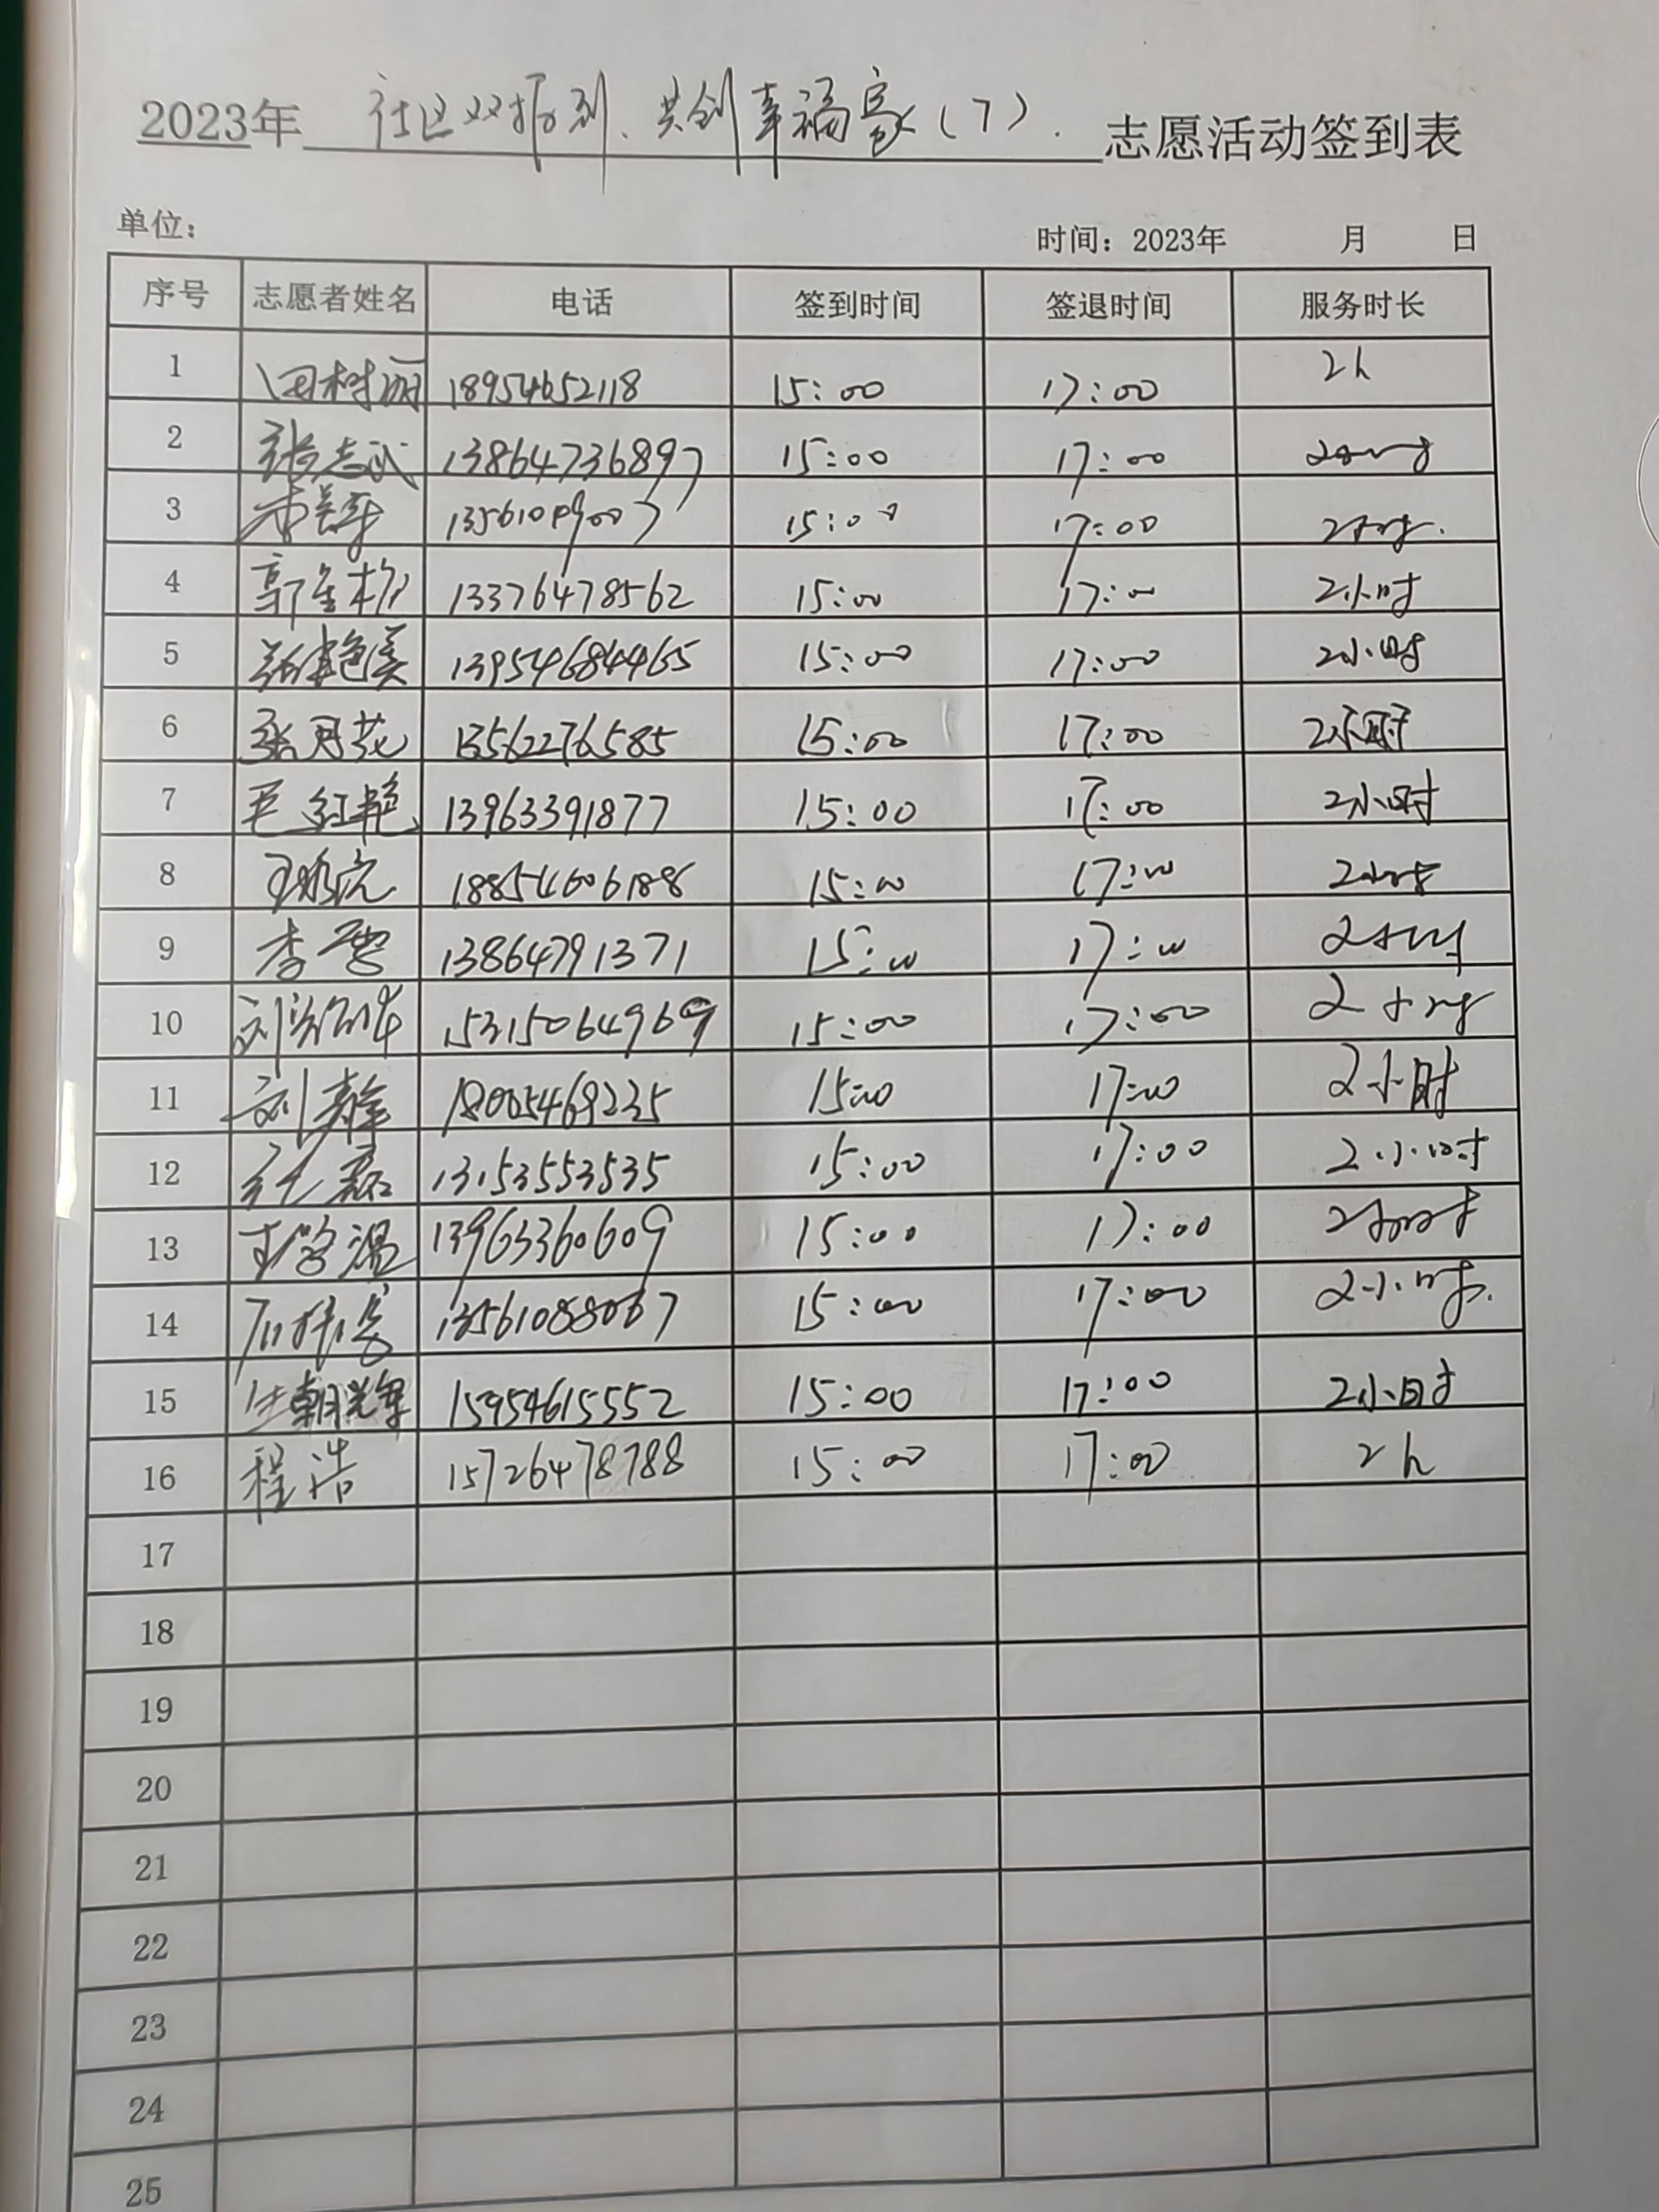 2023年 社区双报到、共创幸福家(7). 志愿活动签到表
单位: 时间: 2023年 月 日
序号 志愿者姓名 电话 签到时间 签退时间 服务时长
1 田树丽 18954652118 15:00 17:00 2h
2 张志武 13864736897 15:00 17:00 2小时
3 15:00 17:00 2小时.
4 13376478562 15:00 17:00 2小时
5 13954684465 15:00 17:00 2小时
6 张月花 13562276585 15:00 17:00 2小时
7 毛红艳 13963391877 15:00 17:00 2小时
8 18854606188 15:00 17:00 2小时
9 李雪 13864791371 15:00 17:00 2小时
10 15315064969 15:00 17:00 2小时
11 刘静 18005469235 15:00 17:00 2小时
12 13153553535 15:00 17:00 2.小.时
13 13963360609 15:00 17:00 2小时
14 13561088067 15:00 17:00 2小时.
15 生朝辉 15954615552 15:00 17:00 2小时
16 程浩 15726478788 15:00 17:00 2h
17
18
19
20
21
22
23
24
25